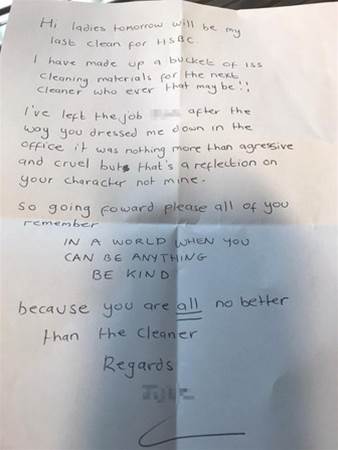 Hi ladies tomorrow will be my
last clean for HSBC.
I have made up a bucket of iss
cleaning materials for the next
cleaner who ever that may be!!
I've left the job after the
way you dressed me down in the
office it was nothing more than agressive
and cruel but that's a reflection on
your character not mine.
So going foward please all of you
remember
IN A WORLD WHEN YOU
CAN BE ANYTHING
BE KIND
because you are all no better
than the cleaner
Regards